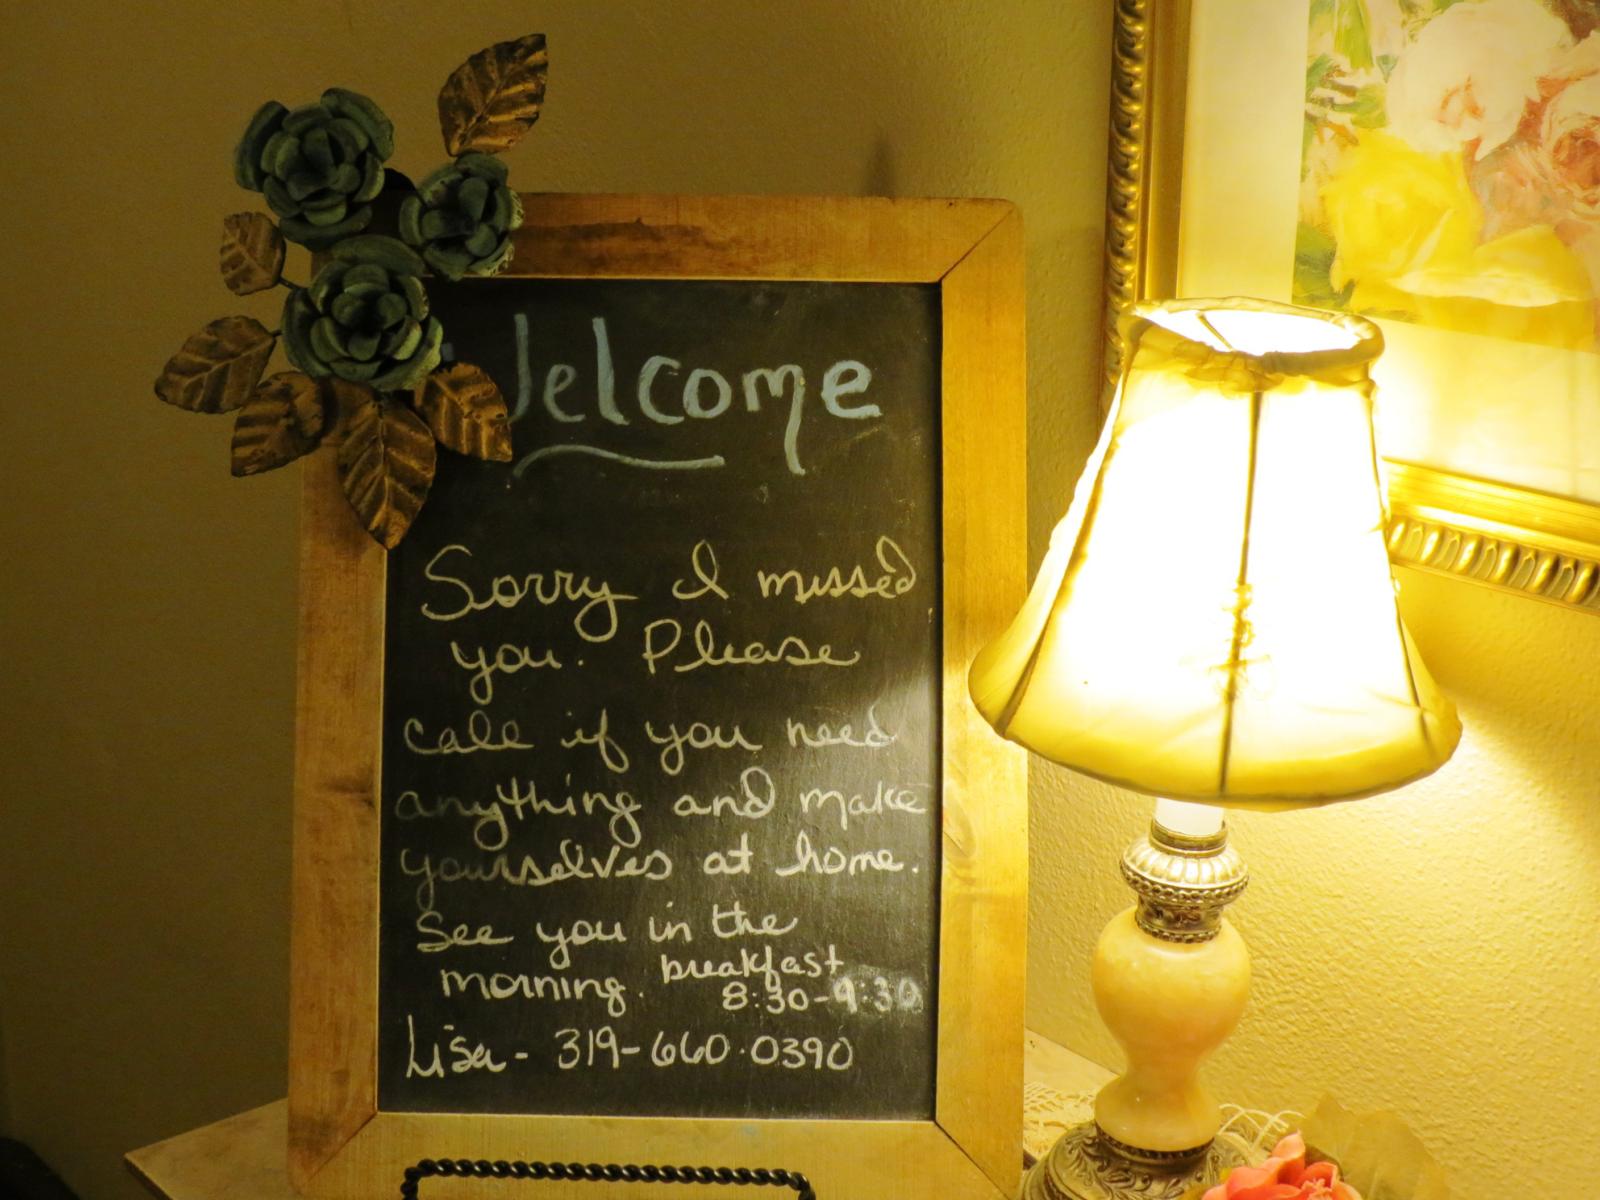 Welcome
Sorry I missed
you. Please
call if you need
anything and make
yourselves at home.
See you in the
morning. breakfast
8:30-9:30
Lisa - 319-660-0390